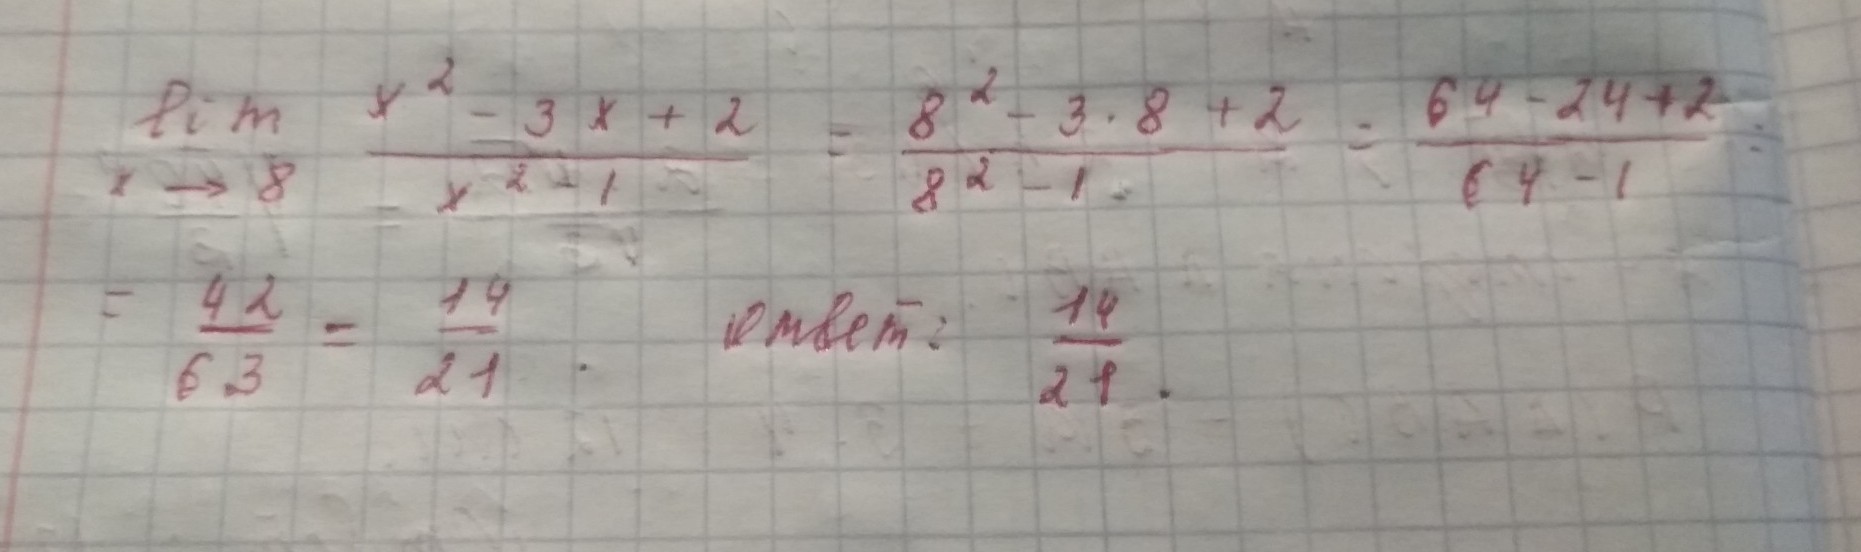 lim x → 8 (x² - 3x + 2)/(x² - 1) = (8² - 3·8 + 2)/(8² - 1) = (64 - 24 + 2)/(64 - 1) =
= 42/63 = 14/21. Ответ: 14/21.